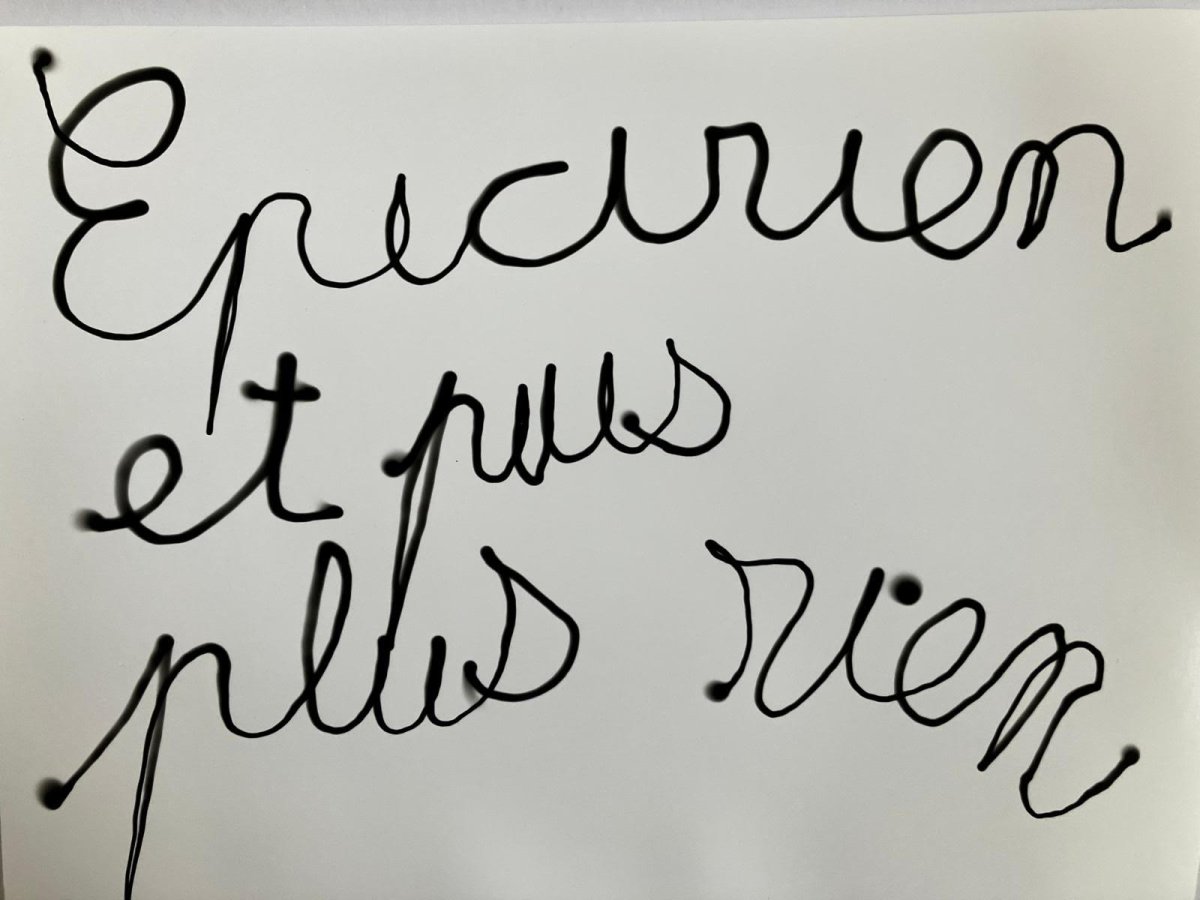 Epicurien
et puis
plus rien